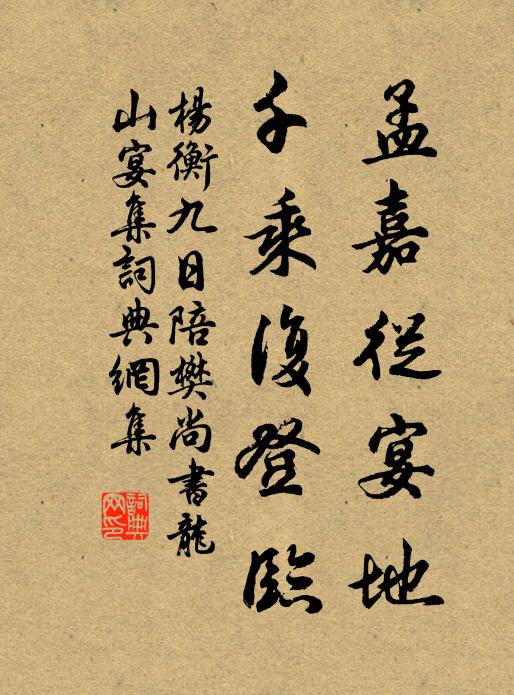 孟嘉從宴地
千乘復登臨
楊衡九日陪樊尚書龍
山宴集詞典網集
詞典
网印